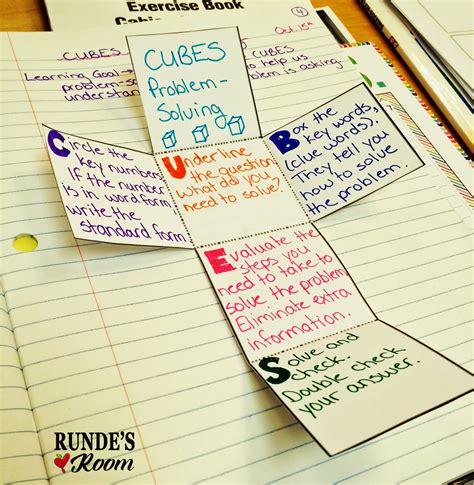 Exercise Book
4
Oct. 15th
CUBES
CUBES
Learning Goal →
to help us
problem-so
problem is asking.
understan
CUBES
Problem-
Solving
Circle the
key number
If the number
is in word form
write the
standard form
Underline
the question
what did you
need to solve?
Box the
key words,
(clue words).
They tell you
how to solve
the problem.
Evaluate the
steps you
need to take to
solve the problem
Eliminate extra
information.
Solve and
check.
Double check
your answer.
RUNDE'S
Room